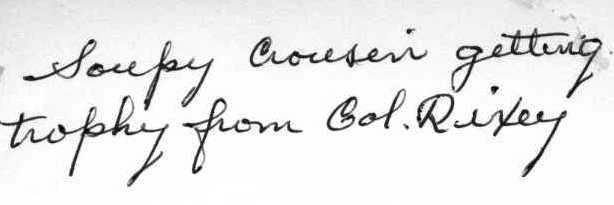 Soupy getting
trophy from Col. Rixey